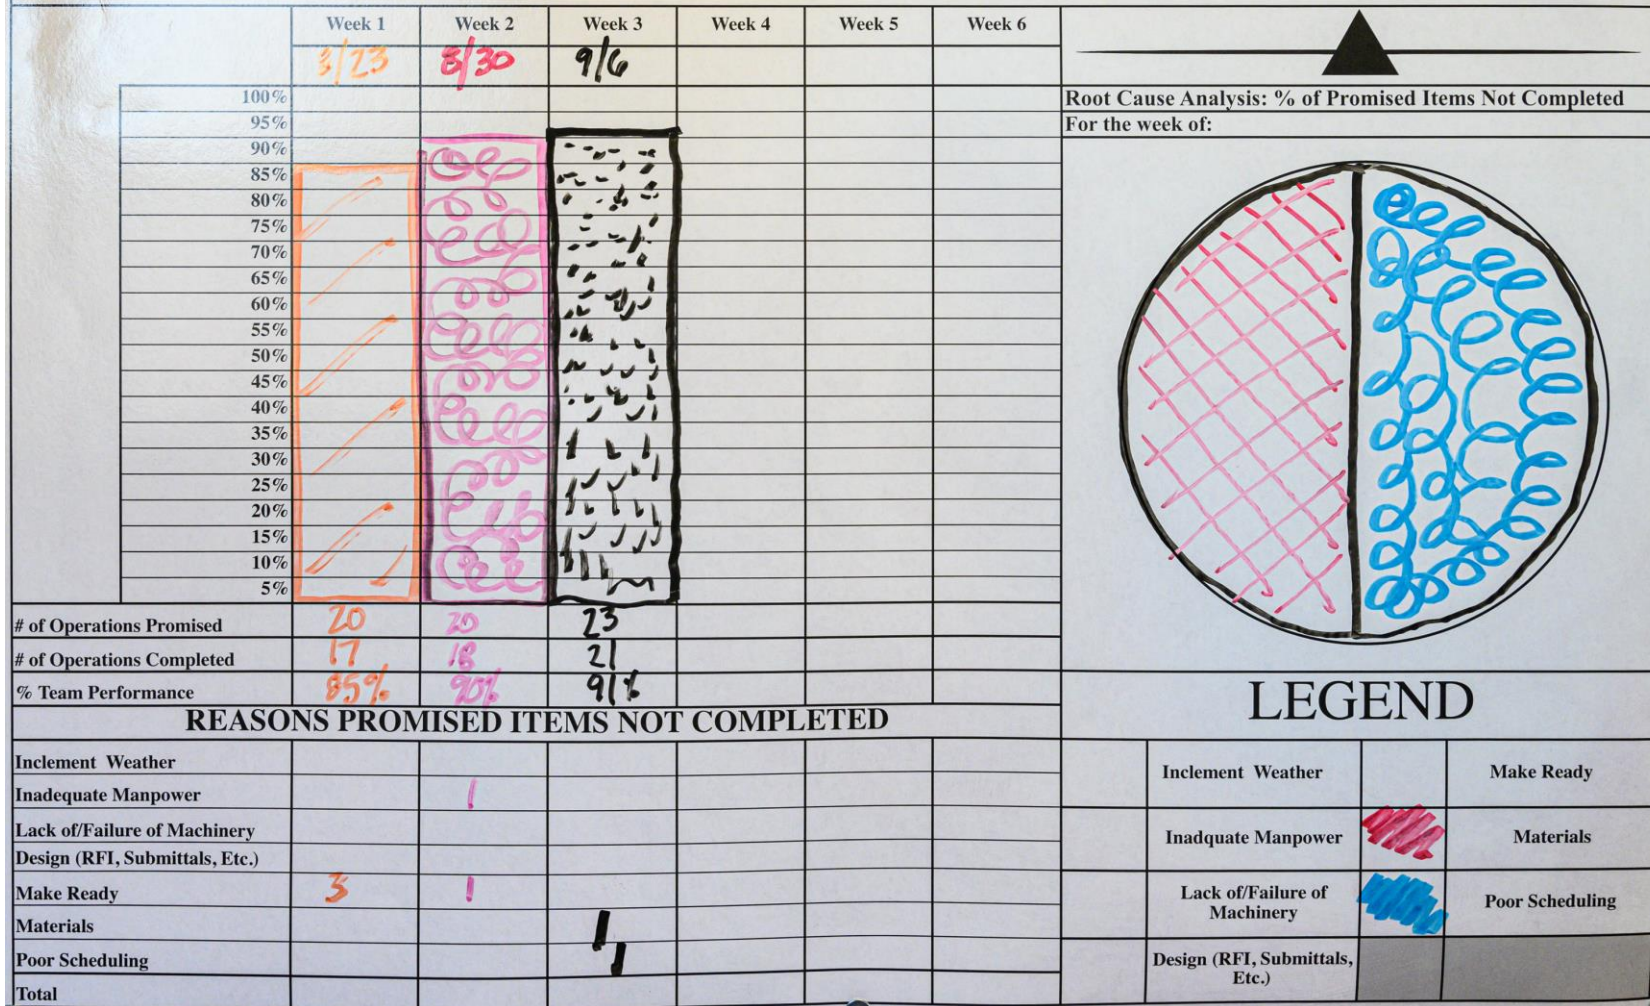 Week 1 Week 2 Week 3 Week 4 Week 5 Week 6
8/23 8/30 9/6
100%
95%
90%
85%
80%
75%
70%
65%
60%
55%
50%
45%
40%
35%
30%
25%
20%
15%
10%
5%
# of Operations Promised 20 20 23
# of Operations Completed 17 18 21
% Team Performance 85% 90% 91%
REASONS PROMISED ITEMS NOT COMPLETED
Inclement Weather
Inadequate Manpower 1
Lack of/Failure of Machinery
Design (RFI, Submittals, Etc.)
Make Ready 3 1
Materials 1
Poor Scheduling 1
Total
Root Cause Analysis: % of Promised Items Not Completed
For the week of:
LEGEND
Inclement Weather Make Ready
Inadquate Manpower Materials
Lack of/Failure of
Machinery Poor Scheduling
Design (RFI, Submittals,
Etc.)